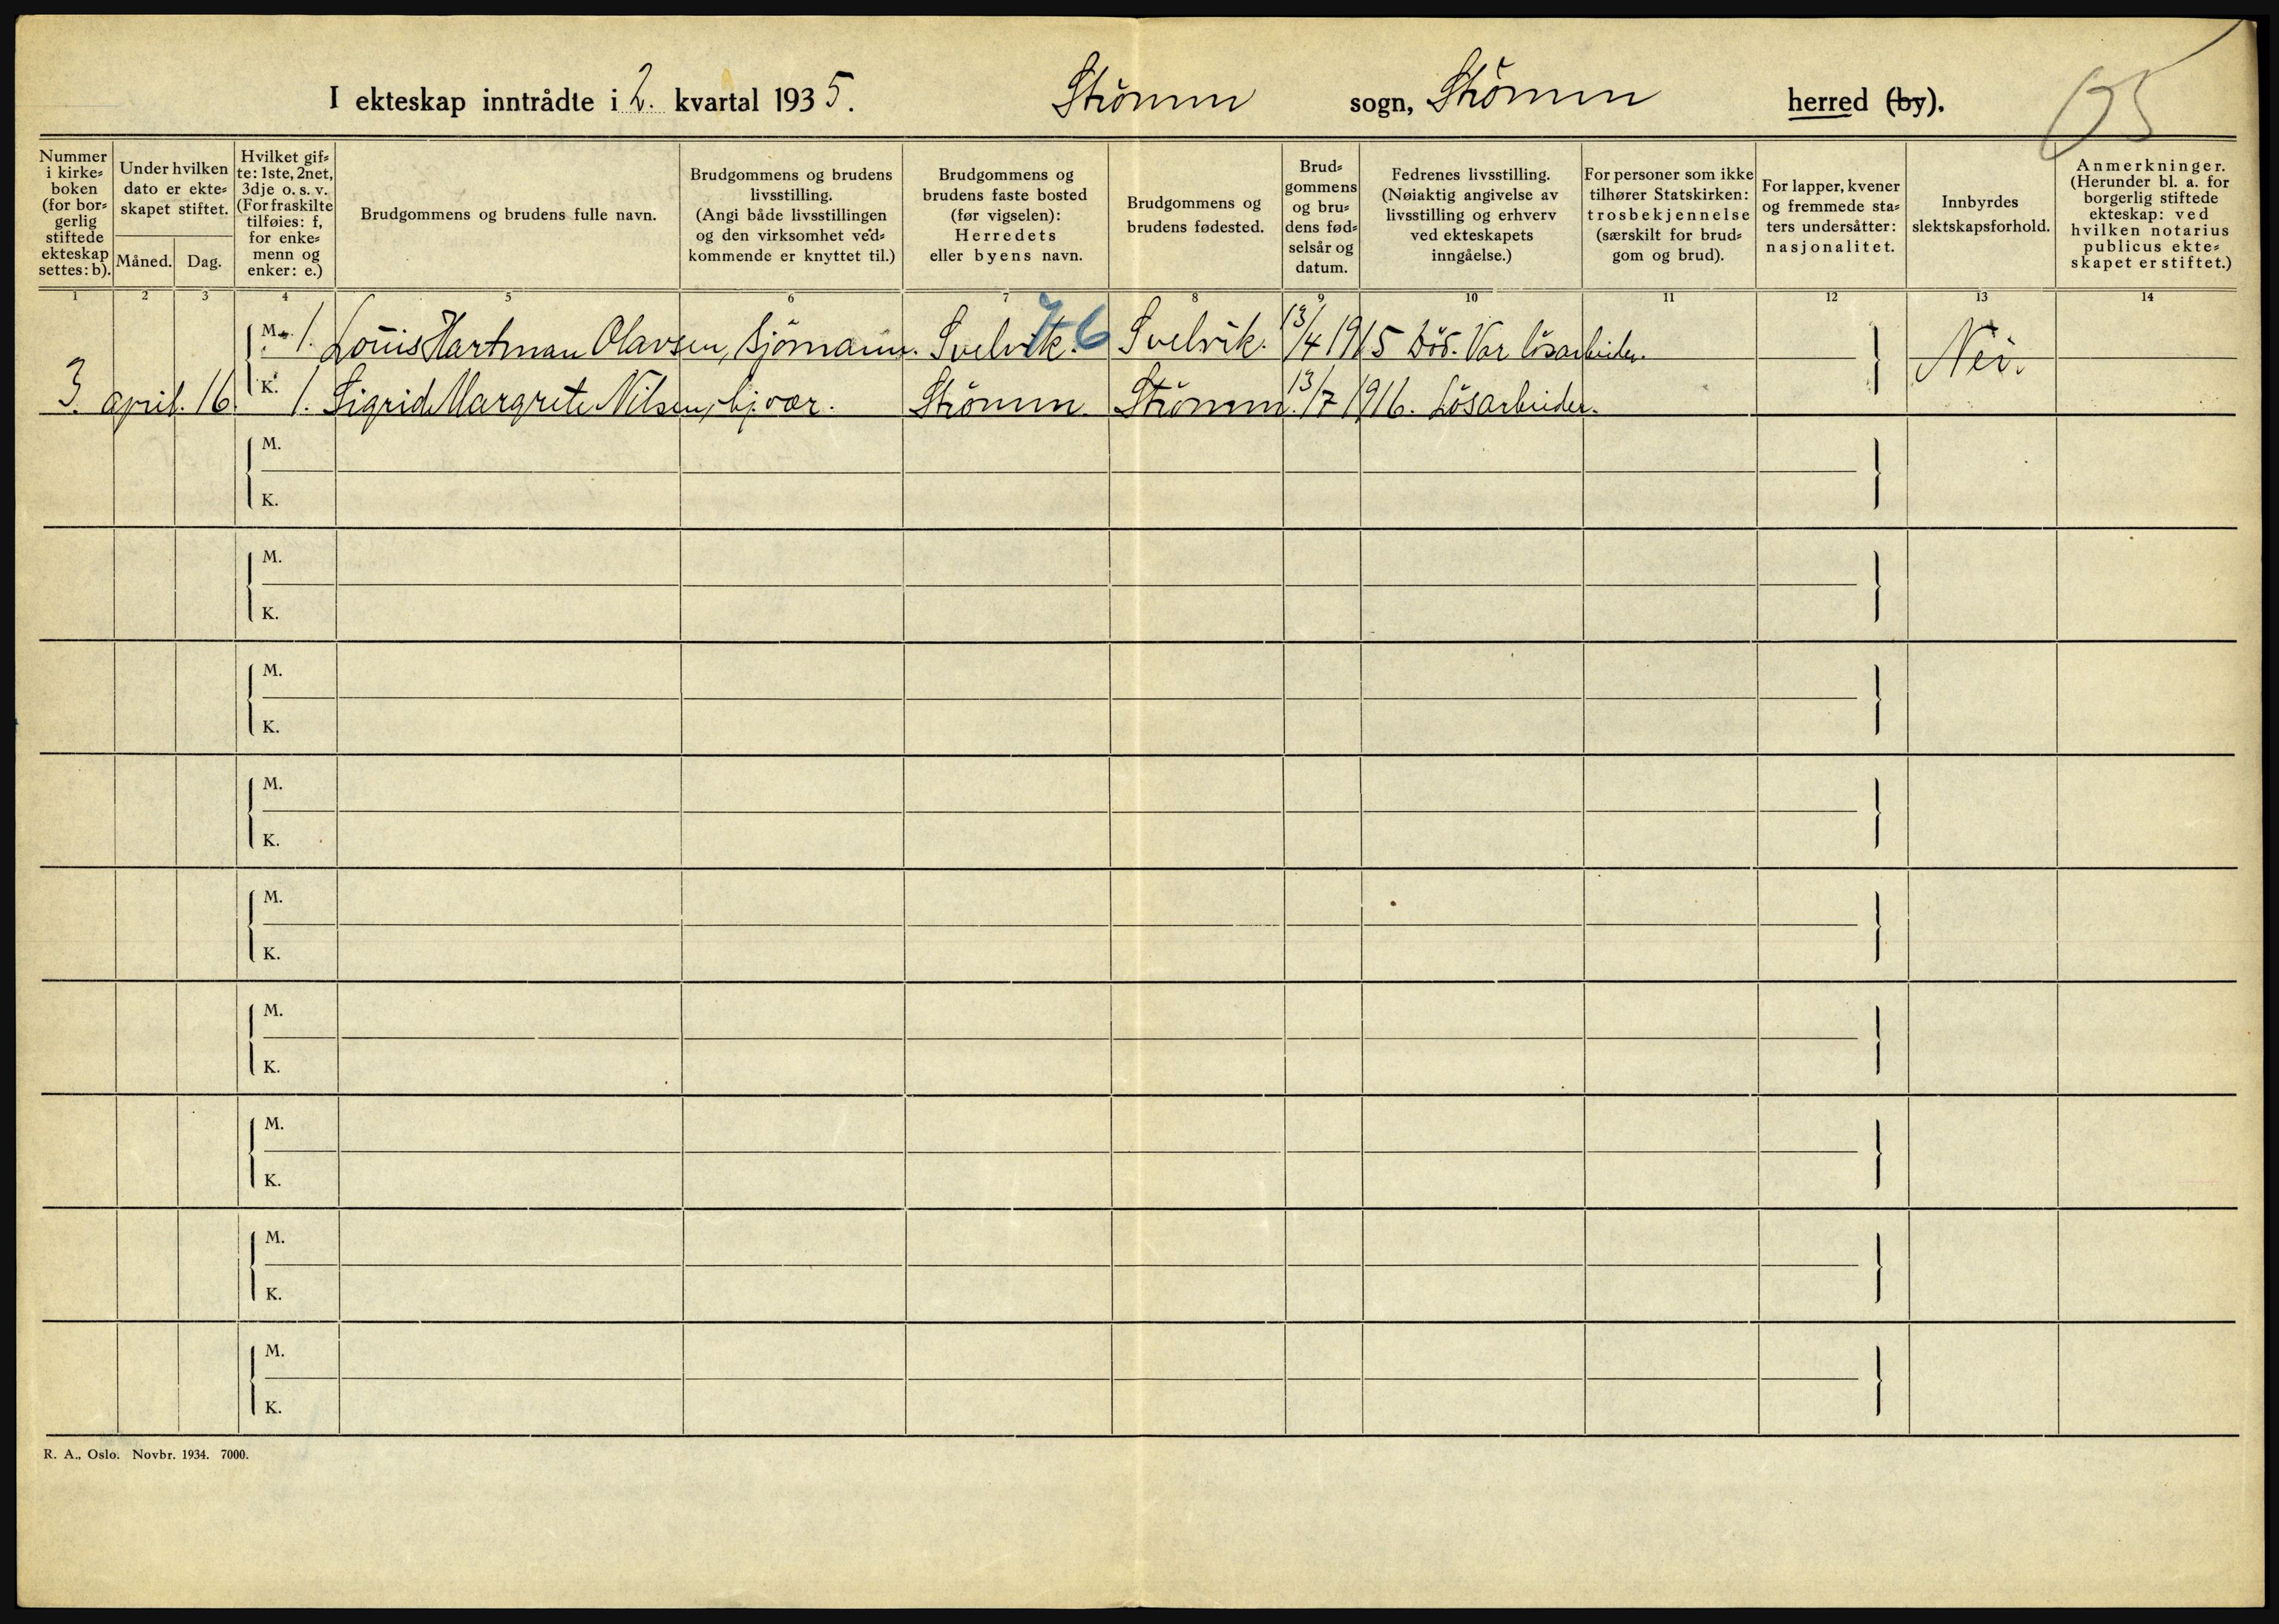 I ekteskap inntrådte i 2. kvartal 1935. Strömm sogn, Strömm herred (by).
Nummer i kirke= boken (for bor= gerlig stiftede ekteskap settes: b).
Under hvilken dato er ekte= skapet stiftet.
Måned. Dag.
Hvilket gif= te: 1ste, 2net, 3dje o. s. v. (For fraskilte tilføies: f, for enke= menn og enker: e.)
Brudgommens og brudens fulle navn.
Brudgommens og brudens livsstilling. (Angi både livsstillingen og den virksomhet ved= kommende er knyttet til.)
Brudgommens og brudens faste bosted (før vigselen): Herredets eller byens navn.
Brudgommens og brudens fødested.
Brud= gommens og bru= dens fød= selsår og datum.
Fedrenes livsstilling. (Nøiaktig angivelse av livsstilling og erhverv ved ekteskapets inngåelse.)
For personer som ikke tilhører Statskirken: trosbekjennelse (særskilt for brud= gom og brud).
For lapper, kvener og fremmede sta= ters undersåtter: nasjonalitet.
Innbyrdes slektskapsforhold.
Anmerkninger. (Herunder bl. a. for borgerlig stiftede ekteskap: ved hvilken notarius publicus ekte= skapet er stiftet.)
1 2 3 4 5 6 7 8 9 10 11 12 13 14
M. 1. Louis Hartman Olavsen, Sjömann. Svelvik. 76 Svelvik. 13/4 1915 Död. Var lösarbeider. Nei.
3. april. 16. K. 1. Sigrid Margrete Nilsen, hj.vær. Strömm. Strömm. 13/7 1916. Lösarbeider.
M.
K.
M.
K.
M.
K.
M.
K.
M.
K.
M.
K.
M.
K.
M.
K.
M.
K.
R. A., Oslo. Novbr. 1934. 7000.